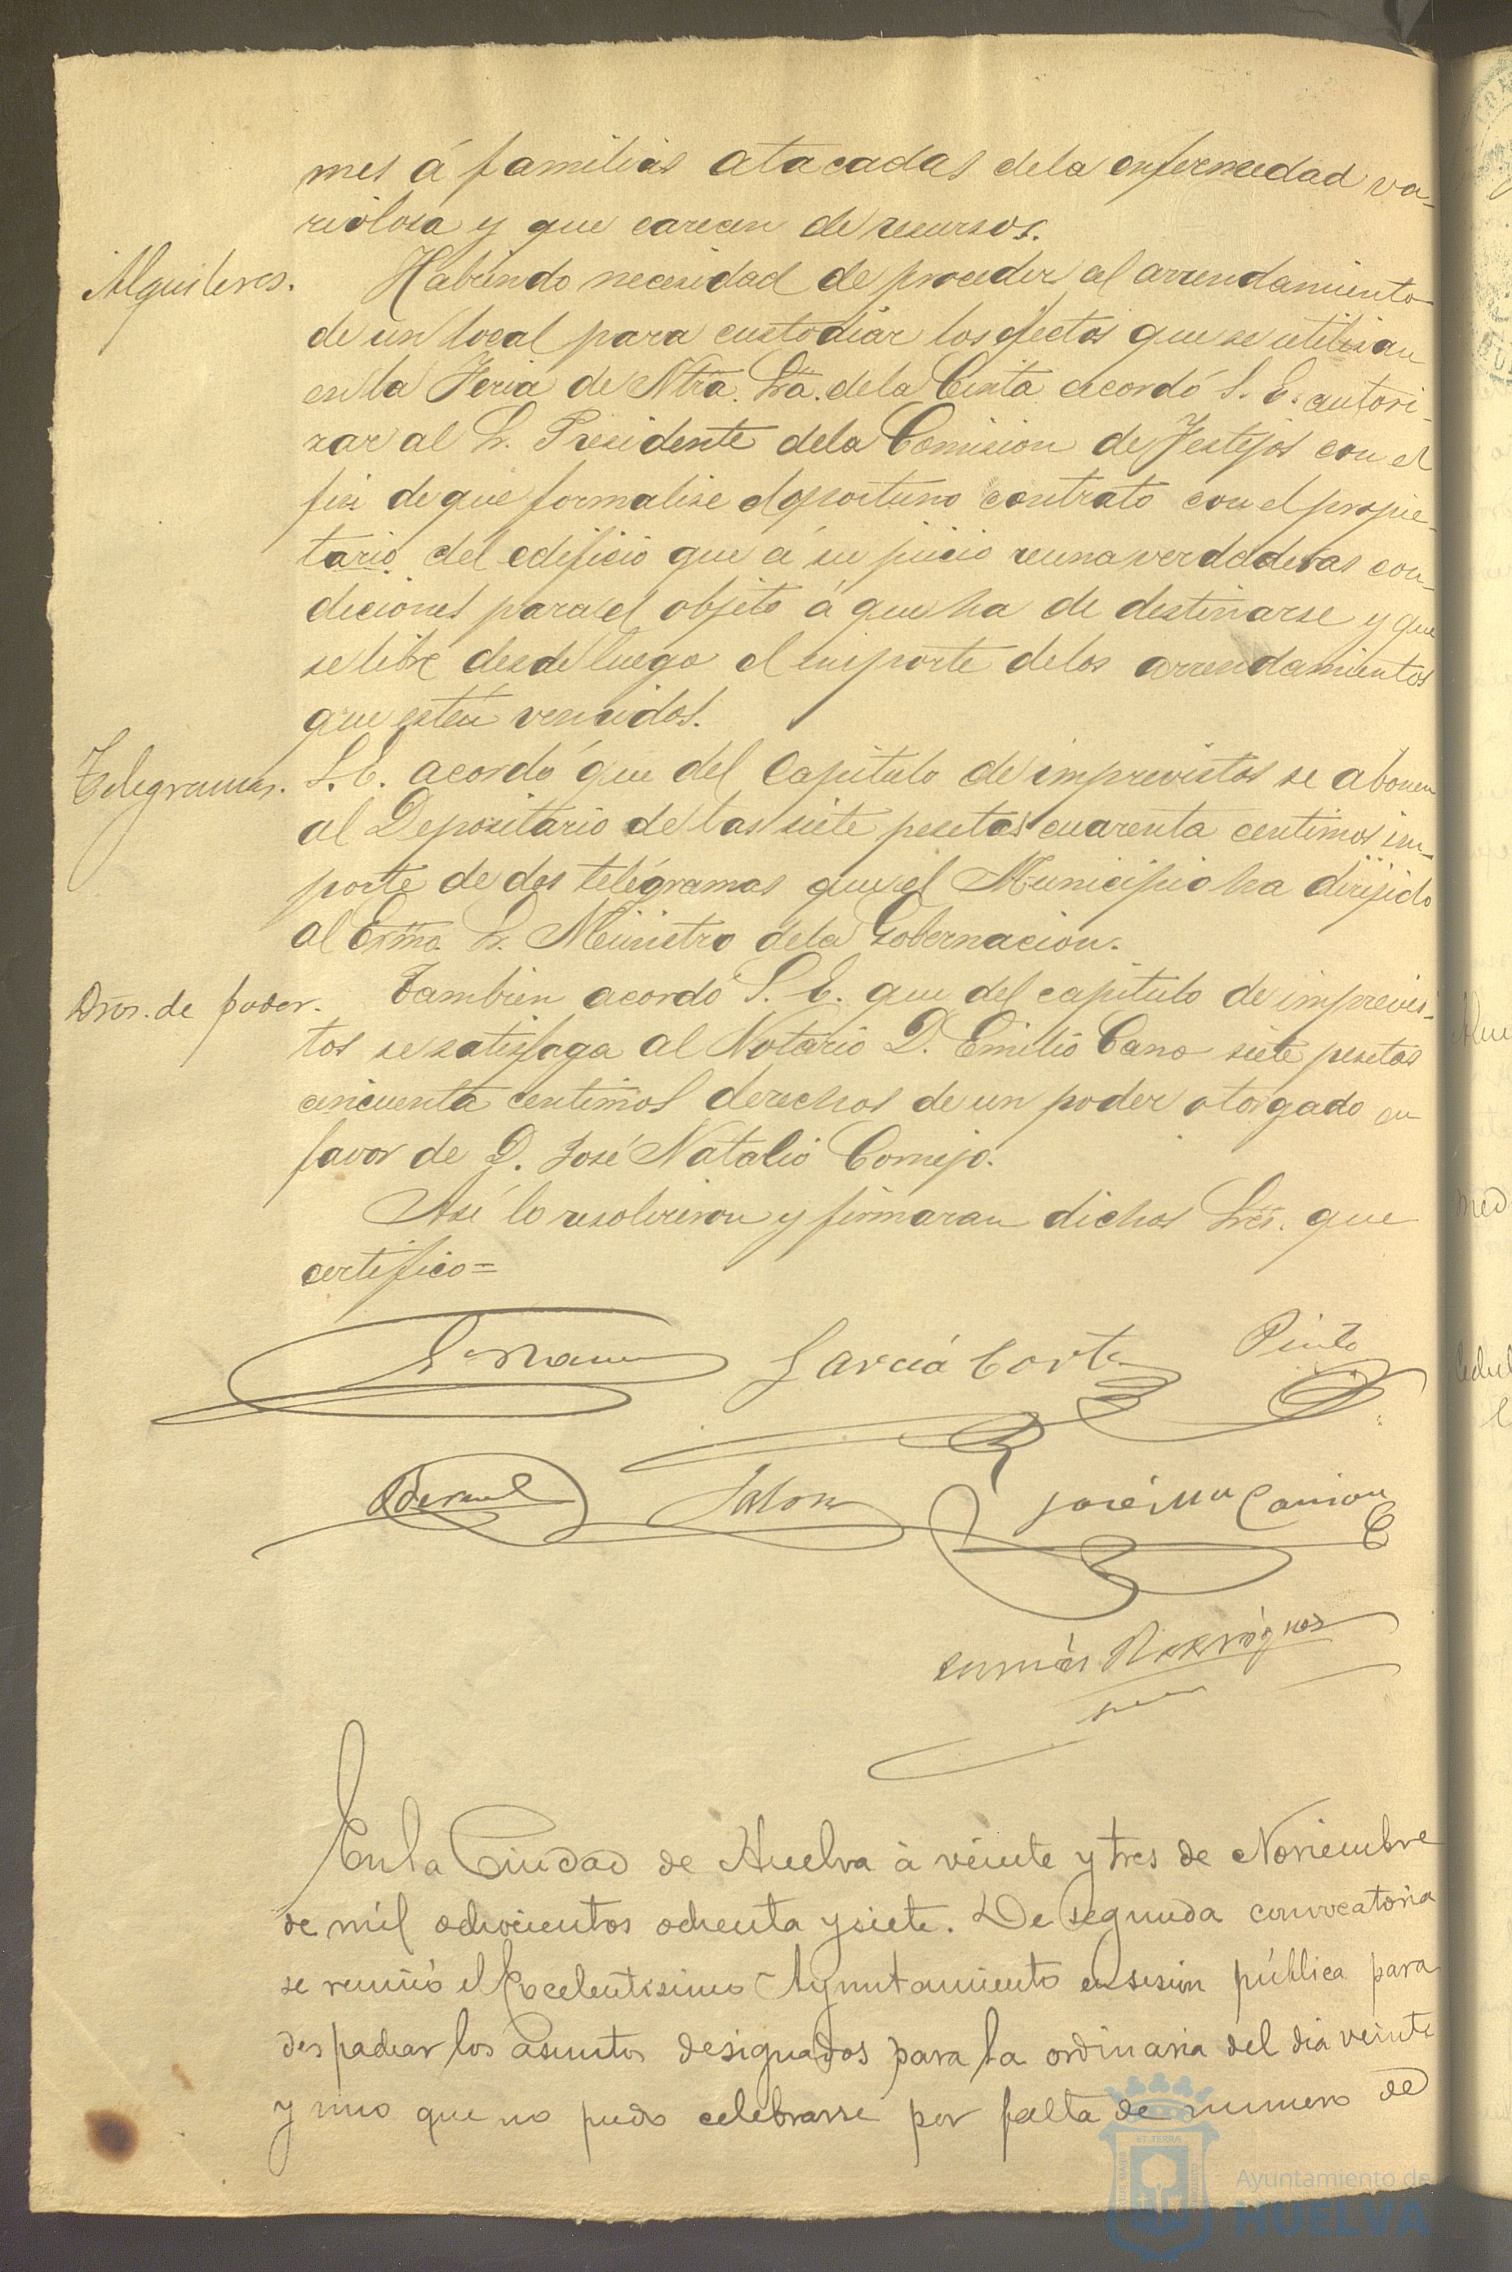 mes á familias atacadas dela enfermedad va-
riolosa y que carecen de recursos.
Alquileres.
Habiendo necesidad de proceder al arrendamiento
de un local para custodiar los efectos que se utilizan
en la Feria de Ntra. Sra. dela Cinta acordó S. E. autori-
zar al Sr. Presidente dela Comision de Festejos con el
fin de que formalise el oportuno contrato con el propie-
tario del edificio que á su juicio reuna verdaderas con-
diciones para el objeto á que ha de destinarse y que
se libre desde luego el importe delos arrendamientos
que estén vencidos.
Telegramas.
S. E. acordó que del Capitulo de imprevistos se abonen
al Depositario de las siete pesetas cuarenta centimos im-
porte de dos telégramas que el Municipio ha dirijido
al Exmo. Sr. Ministro dela Gobernacion.
Dros. de poder.
Tambien acordó S. E. que del capitulo de imprevis-
tos se satisfaga al Notario D. Emilio Cano siete pesetas
cincuenta centimos derechos de un poder otorgado en
favor de D. José Natalio Cornejo.
Asi lo resolvieron y firmaran dichos Sres. que
certifico=
García Cortes
Pinto
José Ma
Tomás Rodríguez
En la Ciudad de Huelva á veinte y tres de Noviembre
de mil ochocientos ochenta y siete. De segunda convocatoria
se reunió el Excelentisimo Ayuntamiento en sesion pública para
despachar los asuntos designados para la ordinaria del dia veinte
y uno que no pudo celebrarse por falta de numero de
Ayuntamiento de
HUELVA